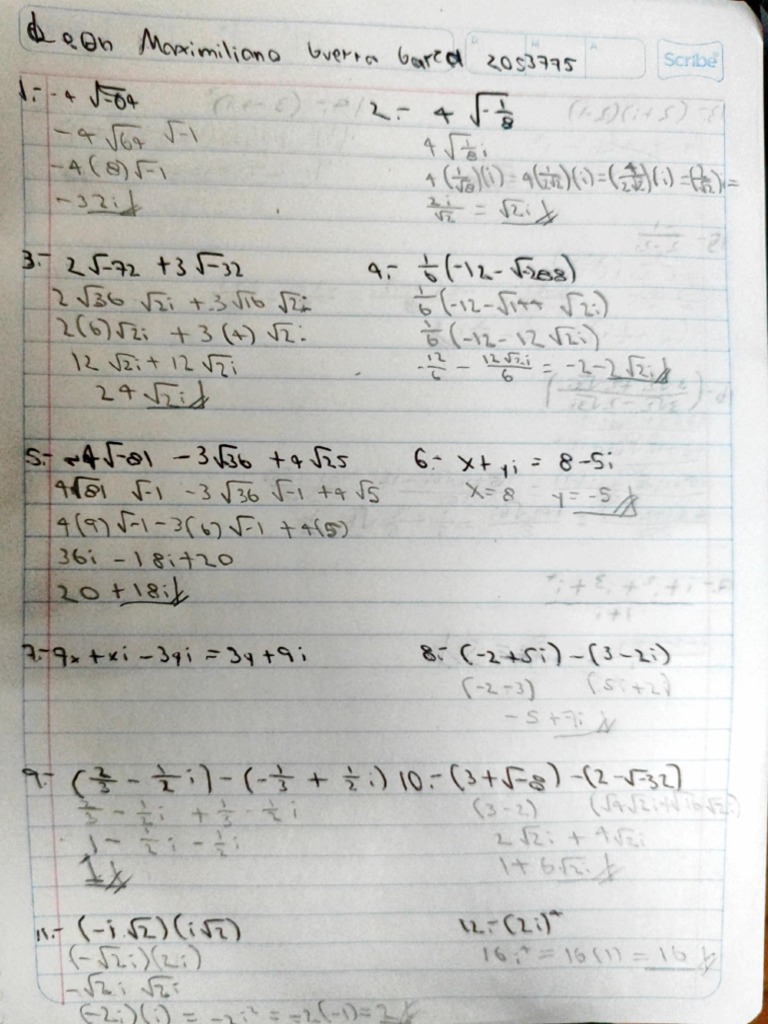 Leon Maximiliano Guerra Garza 2053775
Scribe
1.- -4 √-64
-4 √64 √-1
-4(8)√-1
-32i
2.- 4 √-1/8
4√1/8 i
4(1/√8)(i) = 4(1/2√2)(i) = (4/2√2)(i) = (2/√2)i =
2i/√2 = √2i
3.- 2√-72 + 3√-32
2√36 √2i + 3√16 √2i
2(6)√2i + 3(4)√2i
12√2i + 12√2i
24√2i
4.- 1/6(-12-√-288)
1/6(-12-√144 √2i)
1/6(-12-12√2i)
-12/6 - 12√2i/6 = -2-2√2i
5.- -4√-81 - 3√36 + 4√25
4√81 √-1 - 3√36 √-1 + 4√5
4(9)√-1 - 3(6)√-1 + 4(5)
36i - 18i + 20
20 + 18i
6.- x+yi = 8-5i
x=8 y=-5
7.- 9x + xi - 3yi = 3y + 9i
8.- (-2+5i) - (3-2i)
(-2-3) (5i+2i)
-5+7i
9.- (2/3 - 1/2 i) - (-1/3 + 1/2 i)
2/3 - 1/2 i + 1/3 - 1/2 i
1 - 1/2 i - 1/2 i
1
10.- (3+√-8) - (2-√-32)
(3-2) (√4√2i+√16√2i)
2√2i + 4√2i
1+6√2i
11.- (-i√2)(i√2)
(-√2i)(2i)
-√2i √2i
(-2i)(i) = -2i² = -2(-1) = 2
12.- (2i)⁴
16i⁴ = 16(1) = 16